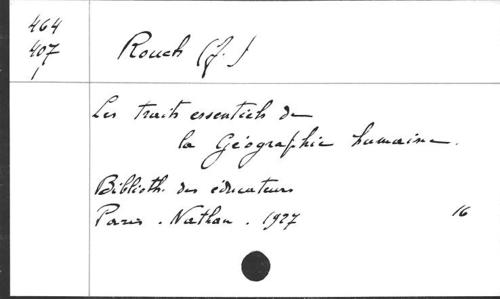 464
407
1
Rouch (J.)
Les traits essentiels de
la Géographie humaine.
Biblioth. des éducateurs
Paris. Nathan. 1927
16